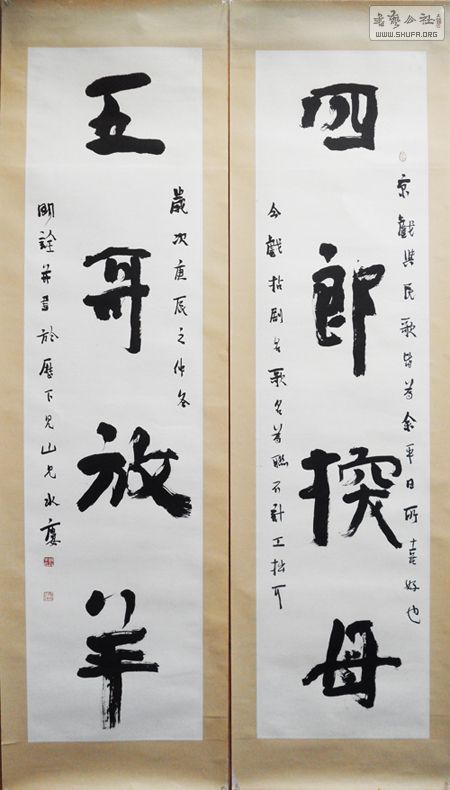 书艺公社
WWW.SHUFA.ORG
京戲與民歌皆為余平日所喜好也
四郎探母
今戲拈劇名歌名為聯不計工拙可
歲次庚辰之仲冬
五哥放羊
明詮并書於歷下見山見水廔